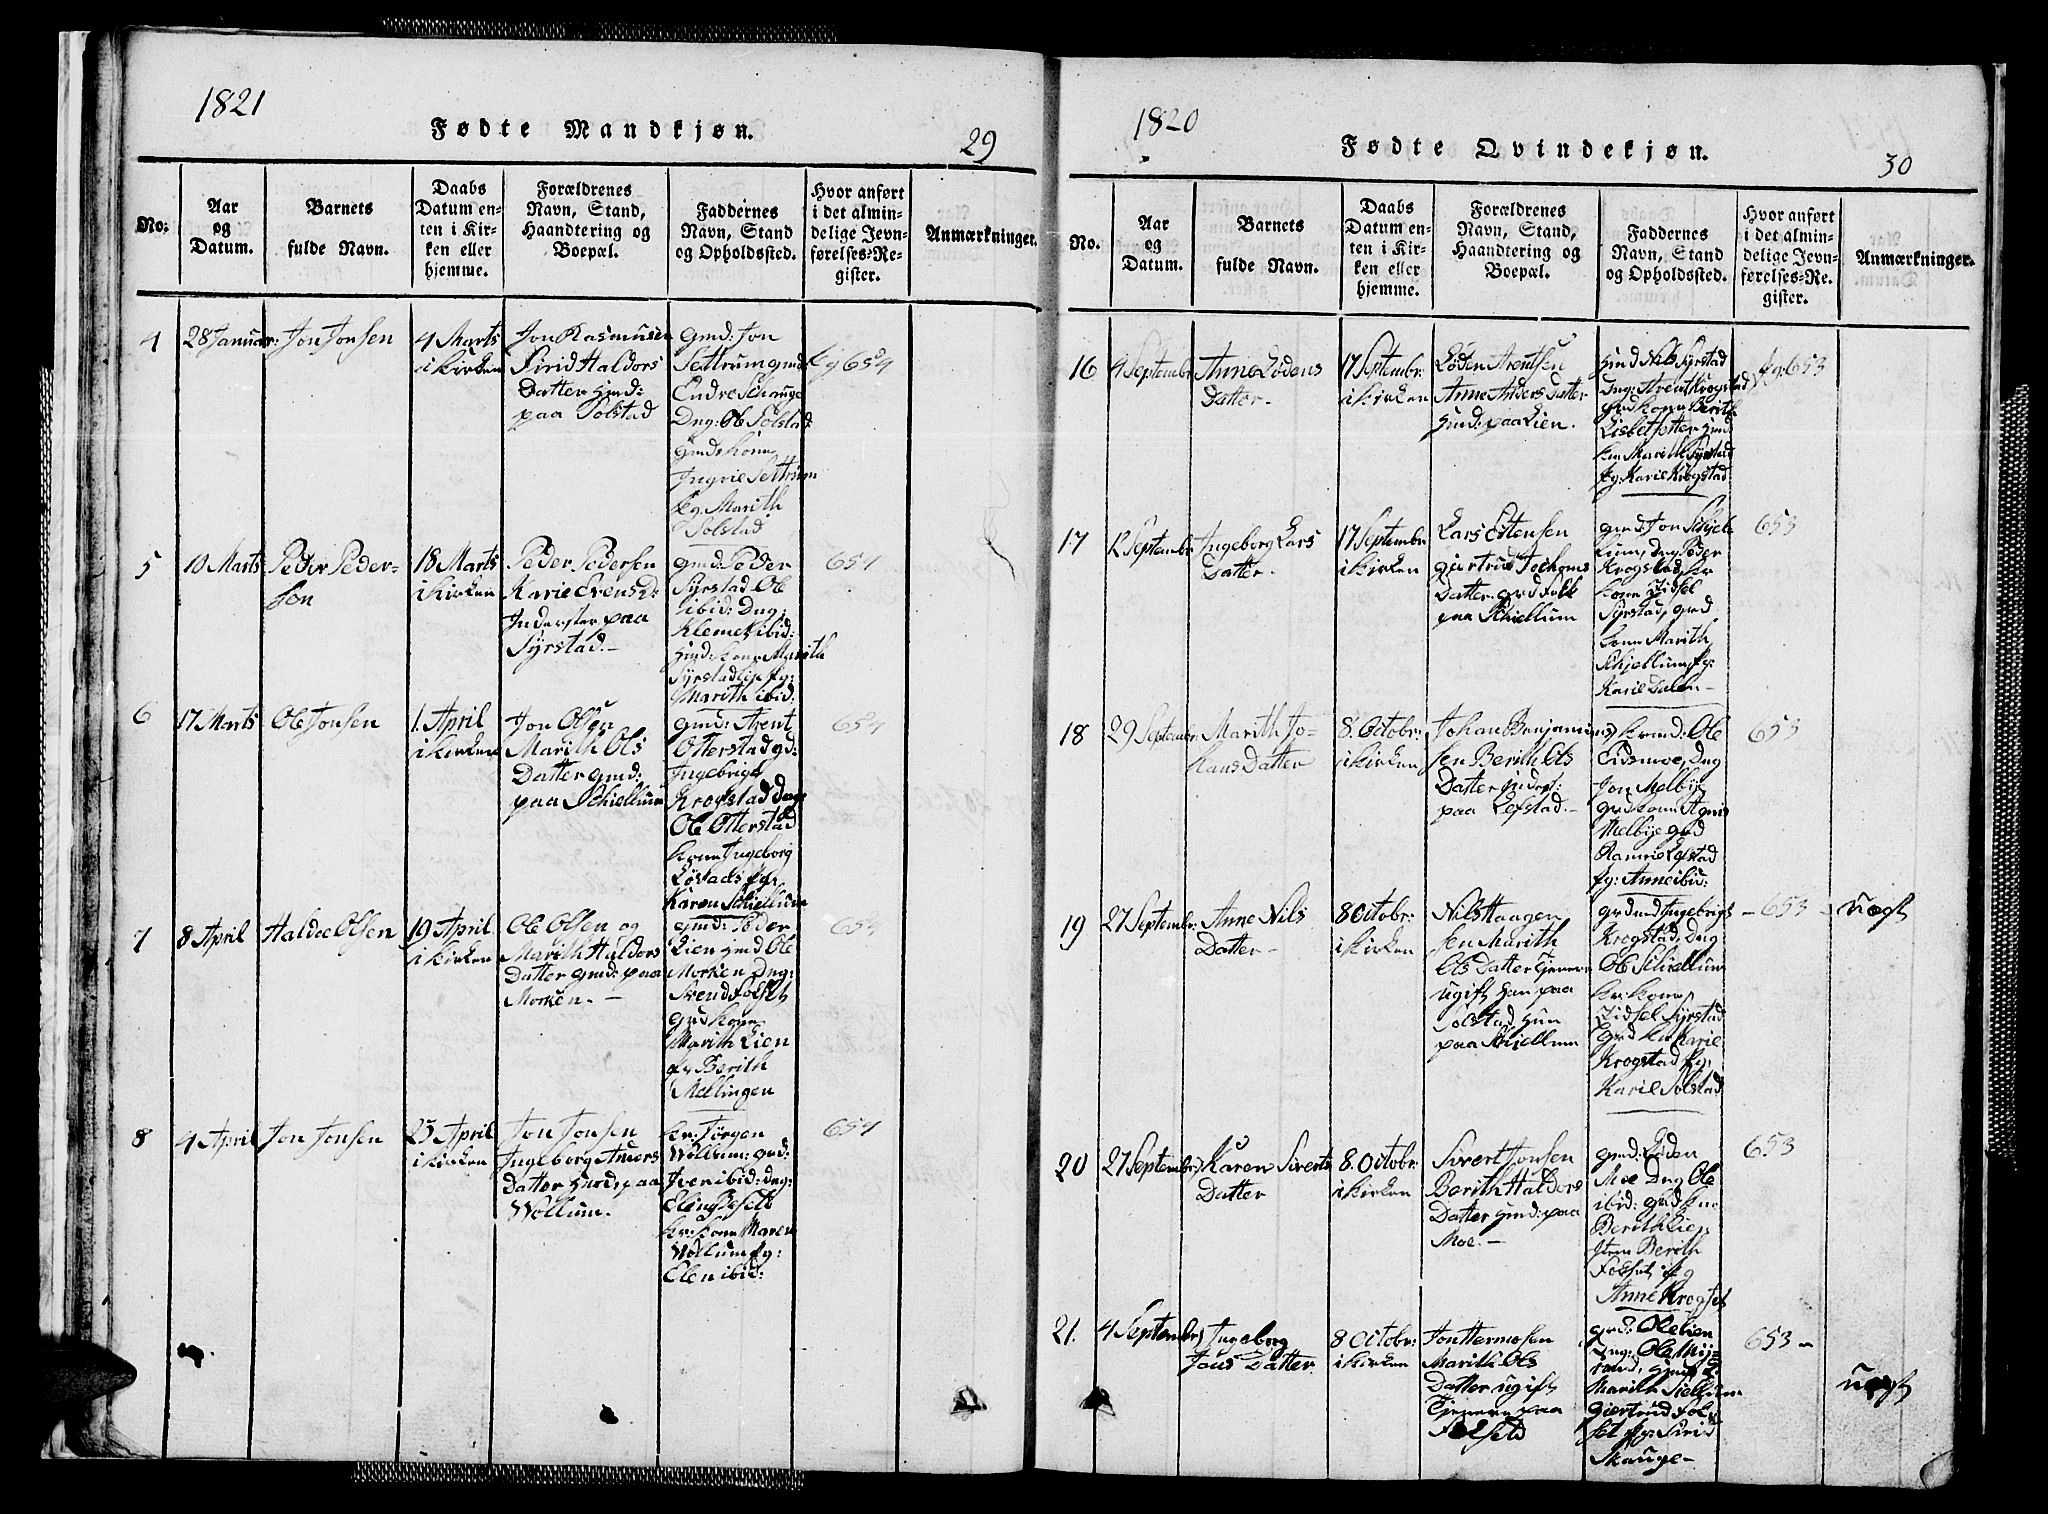 1821
Fødte Mandkjøn.
29
No.
Aar
og
Datum.
Barnets
fulde Navn.
Daabs
Datum en-
ten i Kir-
ken eller
hjemme.
Forældrenes
Navn, Stand,
Haandtering og
Boepæl.
Faddernes
Navn, Stand
og Opholdssted.
Hvor anført
i det almin-
delige Jevn-
førelses-Re-
gister.
Anmærkninger.
4
28 Januar:
Jon Jonsen
4 Marts
i Kirken
Jon Rasmusen
Sirid Haldors
Datter hmd:
paa Solstad
gmd: Jon
Settrum gmd
Endre Schauge
Dng: Ole Solstad
gmdskone
Ingrie Settrum
pg. Marith
Solstad
fg 654
5
10 Marts
Peder Peder-
sen
18 Marts
i Kirken
Peder Pedersen
Karie Evens D:
Inderster paa
Syrstad.-
gmd: Peder
Syrstad Ole
ibid: Dng:
Klemet ibid:
hmd: kone Marith
Syrstadlie pg:
Marith ibid:
654
6
17 Marts
Ole Jonsen
1. April
i Kirken
Jon Olsen
Marith Ols
Datter gmd:
paa Schiellum
gmd: Arent
Otterstad gd:
Ingebrigt
Krogstad Dng
Ole Otterstad
kone Ingeborg
Løstads pg:
Karen Schiellum
654
7
8 April
Haldoe Olsen
19 April
i Kirken
Ole Olsen og
Marith Haldors
Datter gmd: paa
Morken. -
gmd: Peder
Lien hmd Ole
Morken Dng:
Svend Folset
gmd kone
Marith Lien
pg Berith
Mellingen
654
8
4 April
Jon Jonsen
23 April
i Kirken
Jon Jonsen
Ingeborg Anders
Datter hmd: paa
Wollum.
kr: Jørgen
Wollum: gmd:
Iver ibid: dng:
Eling Beselt
kr: kone Maren
Wollum pg:
Elen ibid:
654
1820
Fødte Qvindekjøn.
30
No.
Aar
og
Datum.
Barnets
fulde Navn.
Daabs
Datum en-
ten i Kir-
ken eller
hjemme.
Forældrenes
Navn, Stand,
Haandtering og
Boepæl.
Faddernes
Navn, Stand
og Opholdssted.
Hvor anført
i det almin-
delige Jevn-
førelses-Re-
gister.
Anmærkninger.
16
9 Septembr:
Anne Lødens
Datter.
17 Septembr:
i Kirken
Løden Arentsen
Anne Anders Datter
hmd: paa Lien.
hmd Nils Syrstad
Dng: Arent Krogstad
gmd kone Berith
Lisbetsetter hmd:
kn Marith Syrstad
pg: Karie Krogstad
fg: 653
17
12 Septembr
Ingeborg Lars
Datter.
17 Septembr:
i Kirken
Lars Estensen
giertrud Jochoms
Datter. grd Folk
paa Schiellum
gmd: Jon Schiel-
lum, Dng Peder
Krogstad, kr
kone Zidsel
Syrstad, grd
kone Marith
Schjellum, pg:
Karie Dalen-
653
18
29 Septembr:
Marith Jo-
hans Datter
8. Octobr:
i Kirken
Johan Benjamin
sen Berith Ols
Datter Inderst:
paa Lefstad.-
hmd: Ole
Eidsmoe, Dng
Jon Melbye
grd kone Agnis
Melbye grd
Ramvie Lefstad
pg: Anne ibid:
653
19
27 Septembr:
Anne Nils
Datter-
8 Octobr:
i Kirken
Nils Haagen
sen Marith
Ols Datter tjenere
ugift han paa
Solstad hun
paa Schiellum
grdmd Ingebrigt
Krogstad, Dng
Ole Schiellum
kr: kone
Zidsel Syrstad
grd kn Karie
Krogstad pg:
Karie Solstad
- 653 -
uægt
20
27 Septembr:
Karen Siverts
Datter
8. Octobr:
i Kirken
Sivert Jonsen
Berith Haldors
Datter gmd: paa
Moe.-
gmd: Løden
Moe Dng Ole
ibid: grd kne
Berith Lien
Item Berith
Folset pg
Anne Krogset
653
21.
4 Septembr:
Ingeborg
Jons Datter
8 Octobr:
i Kirken
Jon Hermosen
Marith Ols
Datter ugift
Tjenere paa
Folseld
grd: Ole Lien
Dng: Ole Myr-
Marith Siellum
Giertrud Fol-
set pg: Sirid
Skauge-
653 -
uægt